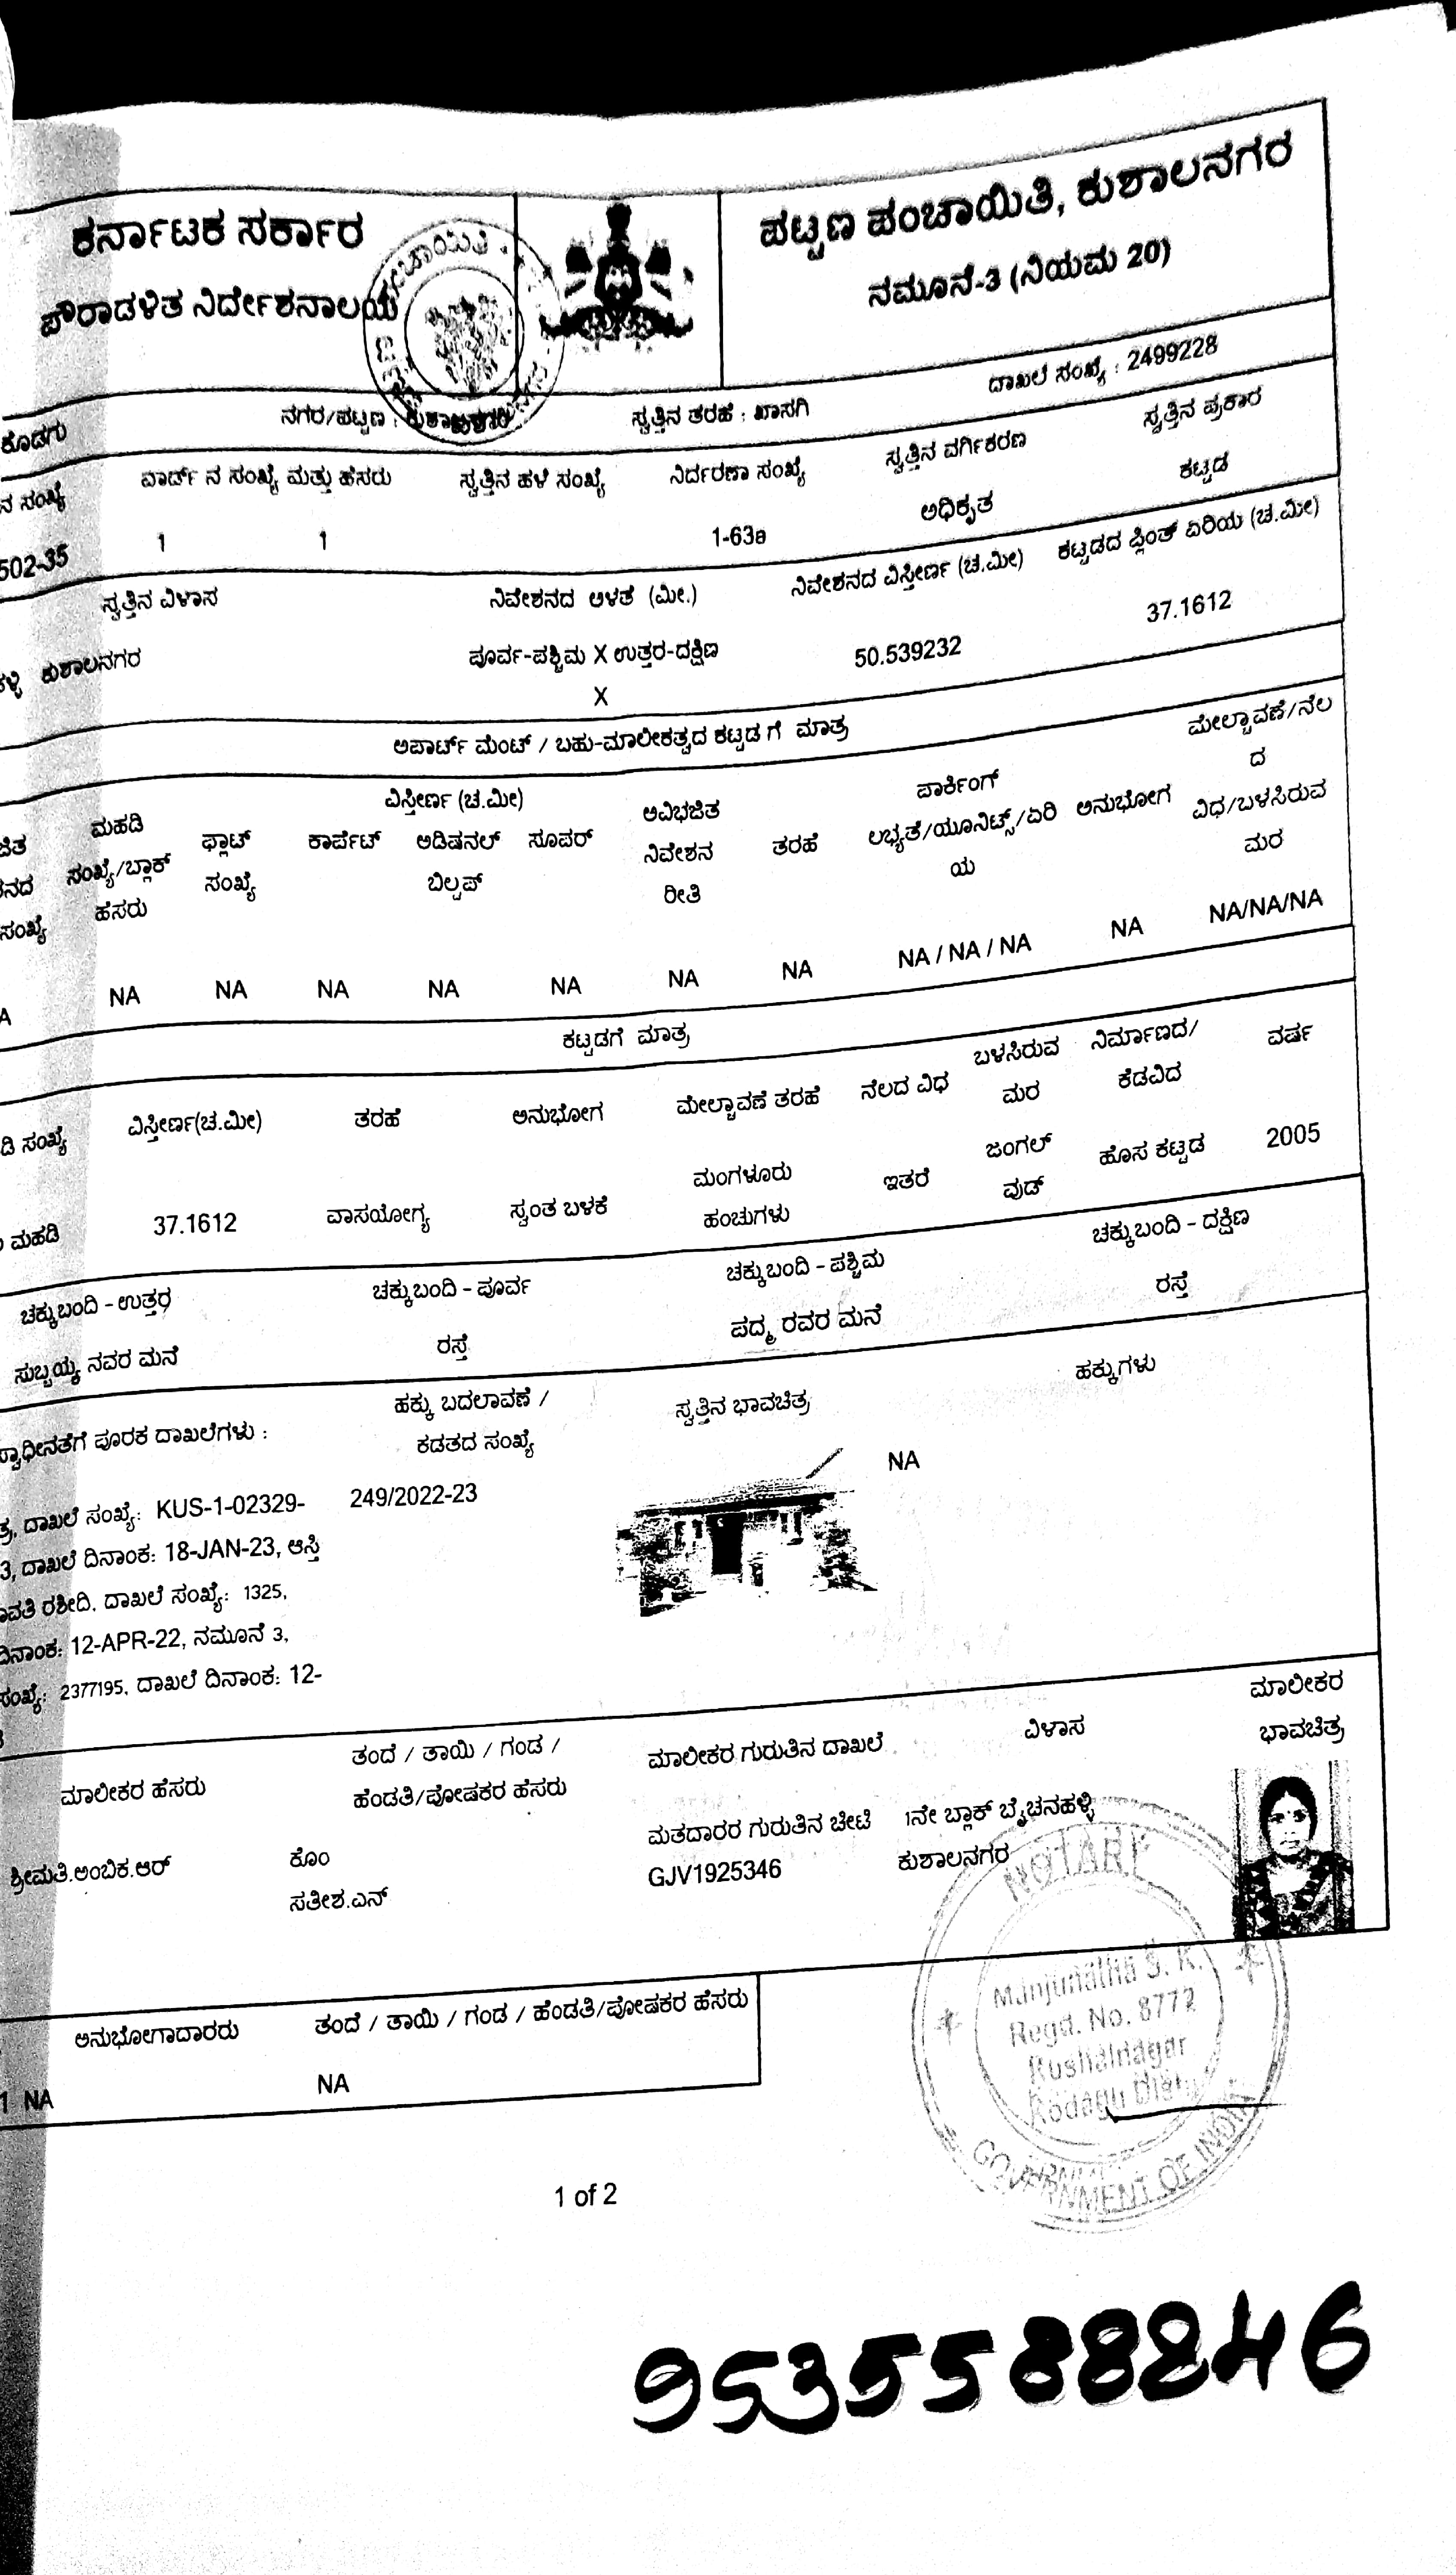 ಕರ್ನಾಟಕ ಸರ್ಕಾರ
ಪೌರಾಡಳಿತ ನಿರ್ದೇಶನಾಲಯ
ಪಟ್ಟಣ ಪಂಚಾಯಿತಿ, ಕುಶಾಲನಗರ
ನಮೂನೆ-3 (ನಿಯಮ 20)
ಕೊಡಗು ನಗರ/ಪಟ್ಟಣ : ಸ್ವತ್ತಿನ ತರಹ : ಖಾಸಗಿ ದಾಖಲೆ ಸಂಖ್ಯೆ : 2499228
ನ ಸಂಖ್ಯೆ ವಾರ್ಡ್ ನ ಸಂಖ್ಯೆ ಮತ್ತು ಹೆಸರು ಸ್ವತ್ತಿನ ಹಳೆ ಸಂಖ್ಯೆ ನಿರ್ದರಣಾ ಸಂಖ್ಯೆ ಸ್ವತ್ತಿನ ವರ್ಗಿಕರಣ ಸ್ವತ್ತಿನ ಪ್ರಕಾರ
502-35 1 1 1-63a ಅಧಿಕೃತ ಕಟ್ಟಡ
ಸ್ವತ್ತಿನ ವಿಳಾಸ ನಿವೇಶನದ ಅಳತೆ (ಮೀ.) ನಿವೇಶನದ ವಿಸ್ತೀರ್ಣ (ಚ.ಮೀ) ಕಟ್ಟಡದ ಪ್ಲಿಂತ್ ಏರಿಯ (ಚ.ಮೀ)
ಕುಶಾಲನಗರ ಪೂರ್ವ-ಪಶ್ಚಿಮ X ಉತ್ತರ-ದಕ್ಷಿಣ 50.539232 37.1612
X
ಅಪಾರ್ಟ್ ಮೆಂಟ್ / ಬಹು-ಮಾಲೀಕತ್ವದ ಕಟ್ಟಡ ಗೆ ಮಾತ್ರ
ವಿಸ್ತೀರ್ಣ (ಚ.ಮೀ) ಮೇಲ್ಚಾವಣೆ/ನೆಲ
ಮಹಡಿ ಫ್ಲಾಟ್ ಕಾರ್ಪೆಟ್ ಅಡಿಷನಲ್ ಸೂಪರ್ ಅವಿಭಜಿತ ತರಹೆ ಪಾರ್ಕಿಂಗ್ ಅನುಭೋಗ ದ
ನದ ಸಂಖ್ಯೆ/ಬ್ಲಾಕ್ ಸಂಖ್ಯೆ ಬಿಲ್ಟಪ್ ನಿವೇಶನ ಲಭ್ಯತೆ/ಯೂನಿಟ್ಸ್/ಏರಿ ವಿಧ/ಬಳಸಿರುವ
ಸಂಖ್ಯೆ ಹೆಸರು ರೀತಿ ಯ ಮರ
A NA NA NA NA NA NA NA NA / NA / NA NA NA/NA/NA
ಕಟ್ಟಡಗೆ ಮಾತ್ರ
ಡಿ ಸಂಖ್ಯೆ ವಿಸ್ತೀರ್ಣ(ಚ.ಮೀ) ತರಹೆ ಅನುಭೋಗ ಮೇಲ್ಚಾವಣೆ ತರಹೆ ನೆಲದ ವಿಧ ಬಳಸಿರುವ ನಿರ್ಮಾಣದ/ ವರ್ಷ
ಮರ ಕೆಡವಿದ
ಮಹಡಿ 37.1612 ವಾಸಯೋಗ್ಯ ಸ್ವಂತ ಬಳಕೆ ಮಂಗಳೂರು ಇತರೆ ಜಂಗಲ್ ಹೊಸ ಕಟ್ಟಡ 2005
ಹಂಚುಗಳು ವುಡ್
ಚಕ್ಕುಬಂದಿ - ಉತ್ತರ ಚಕ್ಕುಬಂದಿ - ಪೂರ್ವ ಚಕ್ಕುಬಂದಿ - ಪಶ್ಚಿಮ ಚಕ್ಕುಬಂದಿ - ದಕ್ಷಿಣ
ಸುಬ್ಬಯ್ಯ ನವರ ಮನೆ ರಸ್ತೆ ಪದ್ಮ ರವರ ಮನೆ ರಸ್ತೆ
ಸ್ವಾಧೀನತೆಗೆ ಪೂರಕ ದಾಖಲೆಗಳು : ಹಕ್ಕು ಬದಲಾವಣೆ / ಸ್ವತ್ತಿನ ಭಾವಚಿತ್ರ ಹಕ್ಕುಗಳು
ಕಡತದ ಸಂಖ್ಯೆ
ತ್ರ, ದಾಖಲೆ ಸಂಖ್ಯೆ: KUS-1-02329- 249/2022-23 NA
3, ದಾಖಲೆ ದಿನಾಂಕ: 18-JAN-23, ಆಸ್ತಿ
ಾವತಿ ರಶೀದಿ, ದಾಖಲೆ ಸಂಖ್ಯೆ: 1325,
ದಿನಾಂಕ: 12-APR-22, ನಮೂನೆ 3,
ಸಂಖ್ಯೆ: 2377195, ದಾಖಲೆ ದಿನಾಂಕ: 12-
ಮಾಲೀಕರ ಹೆಸರು ತಂದೆ / ತಾಯಿ / ಗಂಡ / ಮಾಲೀಕರ ಗುರುತಿನ ದಾಖಲೆ ವಿಳಾಸ ಮಾಲೀಕರ
ಹೆಂಡತಿ/ಪೋಷಕರ ಹೆಸರು ಭಾವಚಿತ್ರ
ಶ್ರೀಮತಿ.ಅಂಬಿಕ.ಆರ್ ಕೊಂ ಮತದಾರರ ಗುರುತಿನ ಚೀಟಿ 1ನೇ ಬ್ಲಾಕ್ ಬೈಚನಹಳ್ಳಿ
ಸತೀಶ.ಎನ್ GJV1925346 ಕುಶಾಲನಗರ
NOTARY
Manjunatha S. K.
Regd. No. 8772
Kushalnagar
Kodagu Dist.
GOVERNMENT OF INDIA
ಅನುಭೋಗಾದಾರರು ತಂದೆ / ತಾಯಿ / ಗಂಡ / ಹೆಂಡತಿ/ಪೋಷಕರ ಹೆಸರು
1 NA NA
1 of 2
9535588246